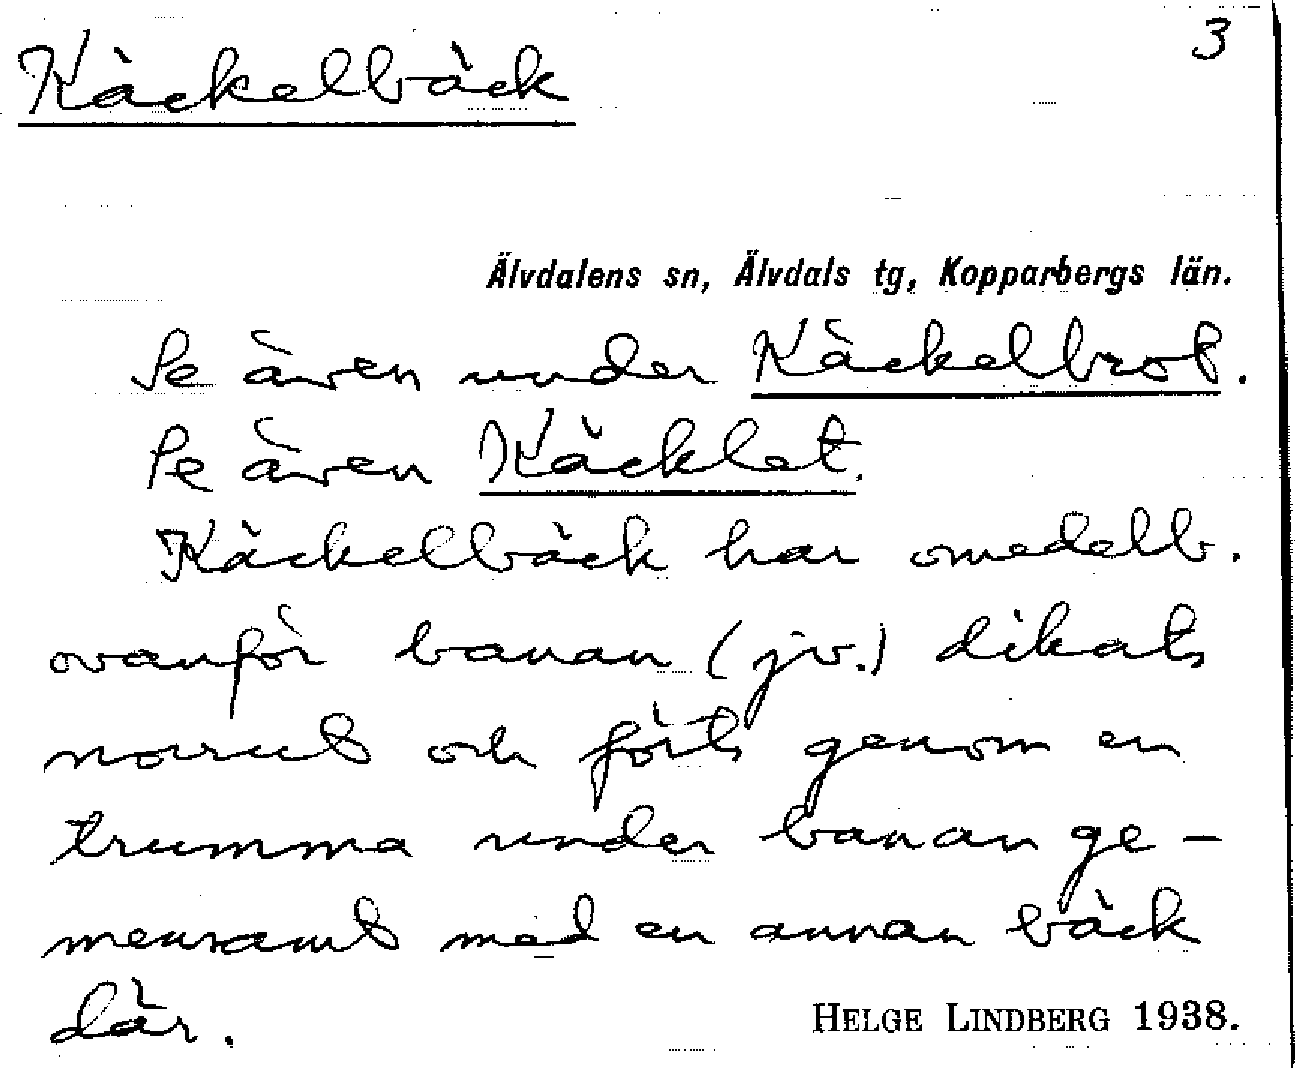 3
Käckelbäck
Älvdalens sn, Älvdals tg, Kopparbergs län.
Se även under Käckelbrot.
Se även Käcklet.
Käckelbäck har omedelb.
ovanför banan (jv.) dikats
norrut och förts genom en
trumma under banan ge-
mensamt med en annan bäck
där.
HELGE LINDBERG 1938.